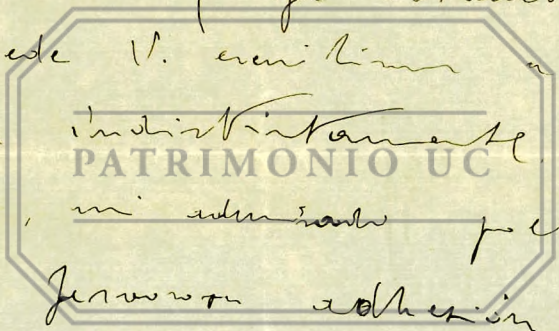 ede V. escribirme a
indistintamente
PATRIMONIO UC
, mi admirado poe
fervorosa adhesión